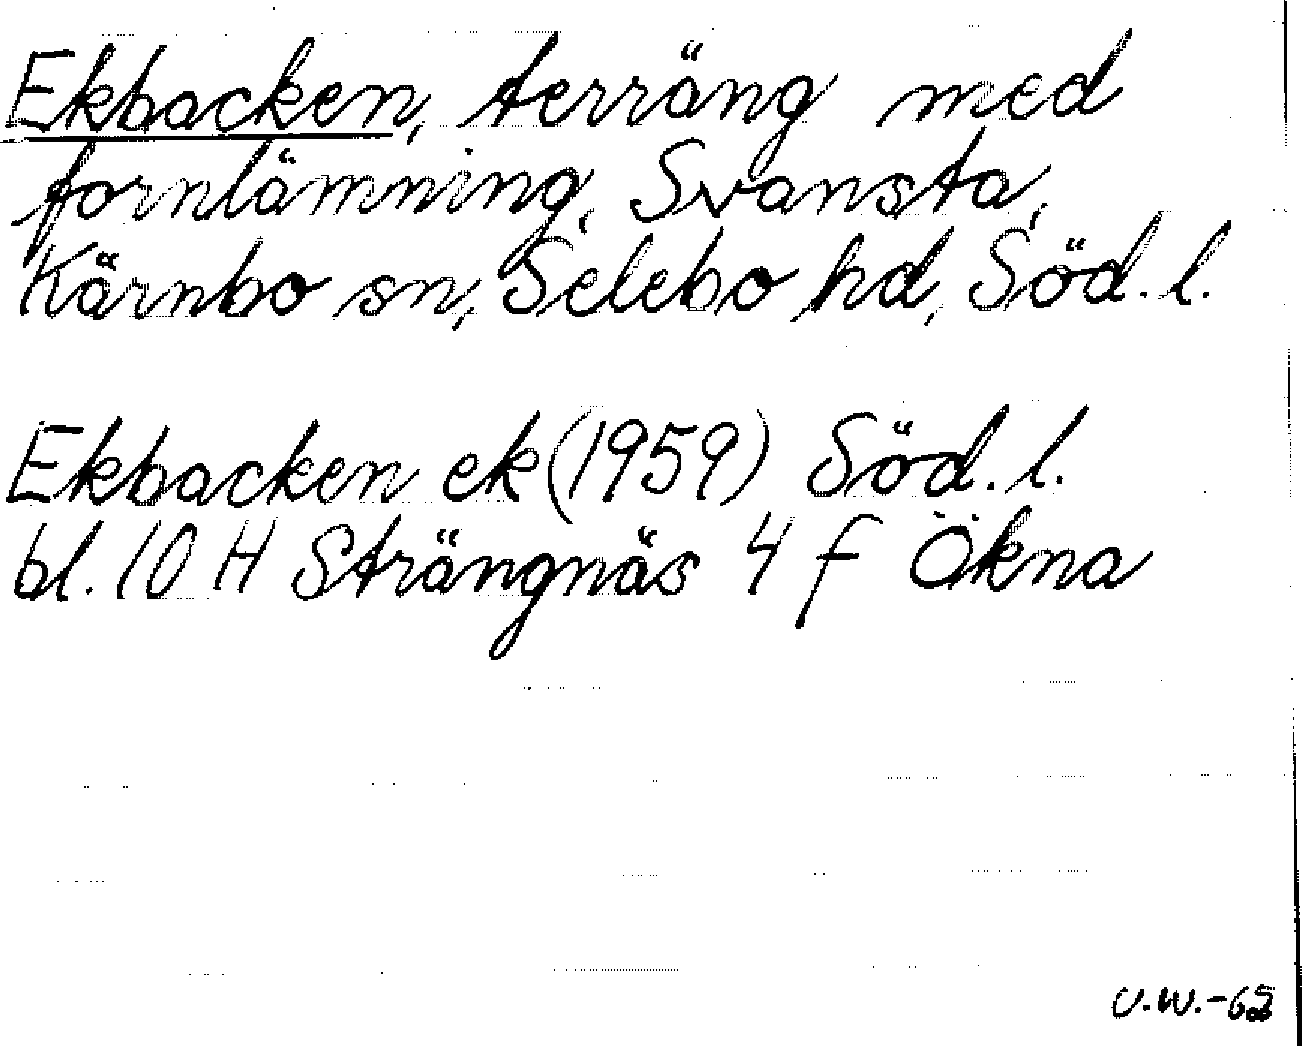 Ekbacken, terräng med
fornlämning, Svansta,
Kärnbo sn, Selebo hd, Söd. l.
Ekbacken ek (1959) Söd. l.
bl. 10 H Strängnäs 4 f Ökna
U.W.-65